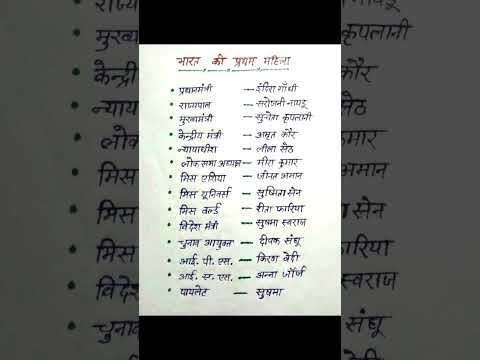 भारत की प्रथम महिला
प्रधानमंत्री — इंदिरा गाँधी
राज्यपाल — सरोजनी नायडू
मुख्यमंत्री — सुचेता कृपलानी
केन्द्रीय मंत्री — अमृत कौर
न्यायाधीश — लीला सेठ
लोकसभा अध्यक्ष — मीरा कुमार
मिस एशिया — जीनत अमान
मिस यूनिवर्स — सुष्मिता सेन
मिस वर्ल्ड — रीता फारिया
विदेश मंत्री — सुषमा स्वराज
चुनाव आयुक्त — दीपक संधू
आई. पी. एस. — किरण बेदी
आई. ए. एस. — अन्ना जॉर्ज
पायलेट — सुषमा